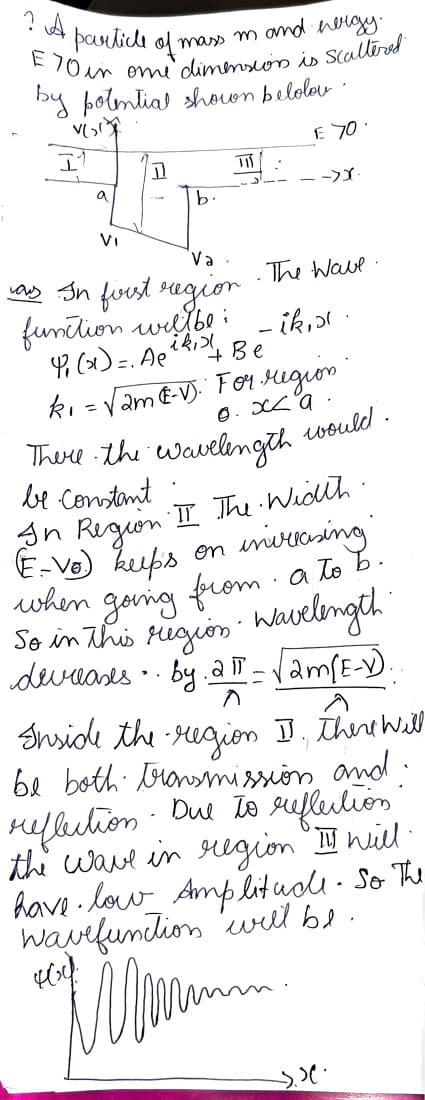 ? A particle of mass m and nergy.
E 70 in one dimension is scattered
by potential shown belolow.
V(x)
E 70.
I
II
III
→x.
a
b.
V1
Va.
ans In first region. The Wave
function will be:
Ψ1(x) = Ae^{ik1x} + Be^{-ik1x}.
k1 = √2m(E-V). For region
0. x<a.
There the wavelength would.
be constant
In Region II The Width
(E-V0) keeps on increasing
when going from a To b.
So in This region. Wavelength
decreases.. by 2π/λ = √2m(E-V)/λ.
Inside the region II. There will
be both transmission and
reflection. Due To reflection
the wave in region III will
have low Amplitude. So The
wavefunction will be.
Ψ(x)
→x.